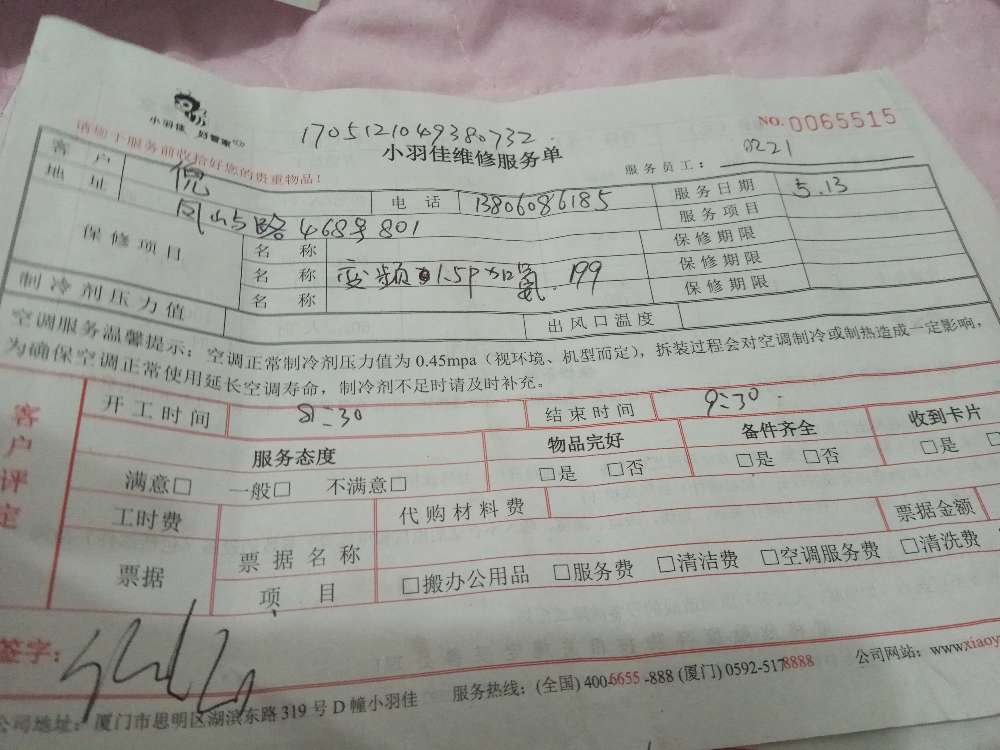 小羽佳 好管家
1705121049380732
NO. 0065515
小羽佳维修服务单
请您于服务前收拾好您的贵重物品!
服务员工: 0221
客户 倪 电话 13806086185 服务日期 5.13
地址 凤山路468号801 服务项目
保修项目 名称 保修期限
名称 变频 1.5P 加氟.199 保修期限
名称 保修期限
制冷剂压力值 出风口温度
空调服务温馨提示:空调正常制冷剂压力值为0.45mpa(视环境、机型而定),拆装过程会对空调制冷或制热造成一定影响,
为确保空调正常使用延长空调寿命,制冷剂不足时请及时补充。
客户评定
开工时间 8:30 结束时间 9:30
服务态度 物品完好 备件齐全 收到卡片
满意□ 一般□ 不满意□ □是 □否 □是 □否 □是 □
工时费 代购材料费
票据 票据名称 票据金额
项目 □搬办公用品 □服务费 □清洁费 □空调服务费 □清洗费
签字:
公司地址:厦门市思明区湖滨东路319号D幢小羽佳 服务热线:(全国)400-6655-888(厦门)0592-5178888 公司网站:www.xiaoy